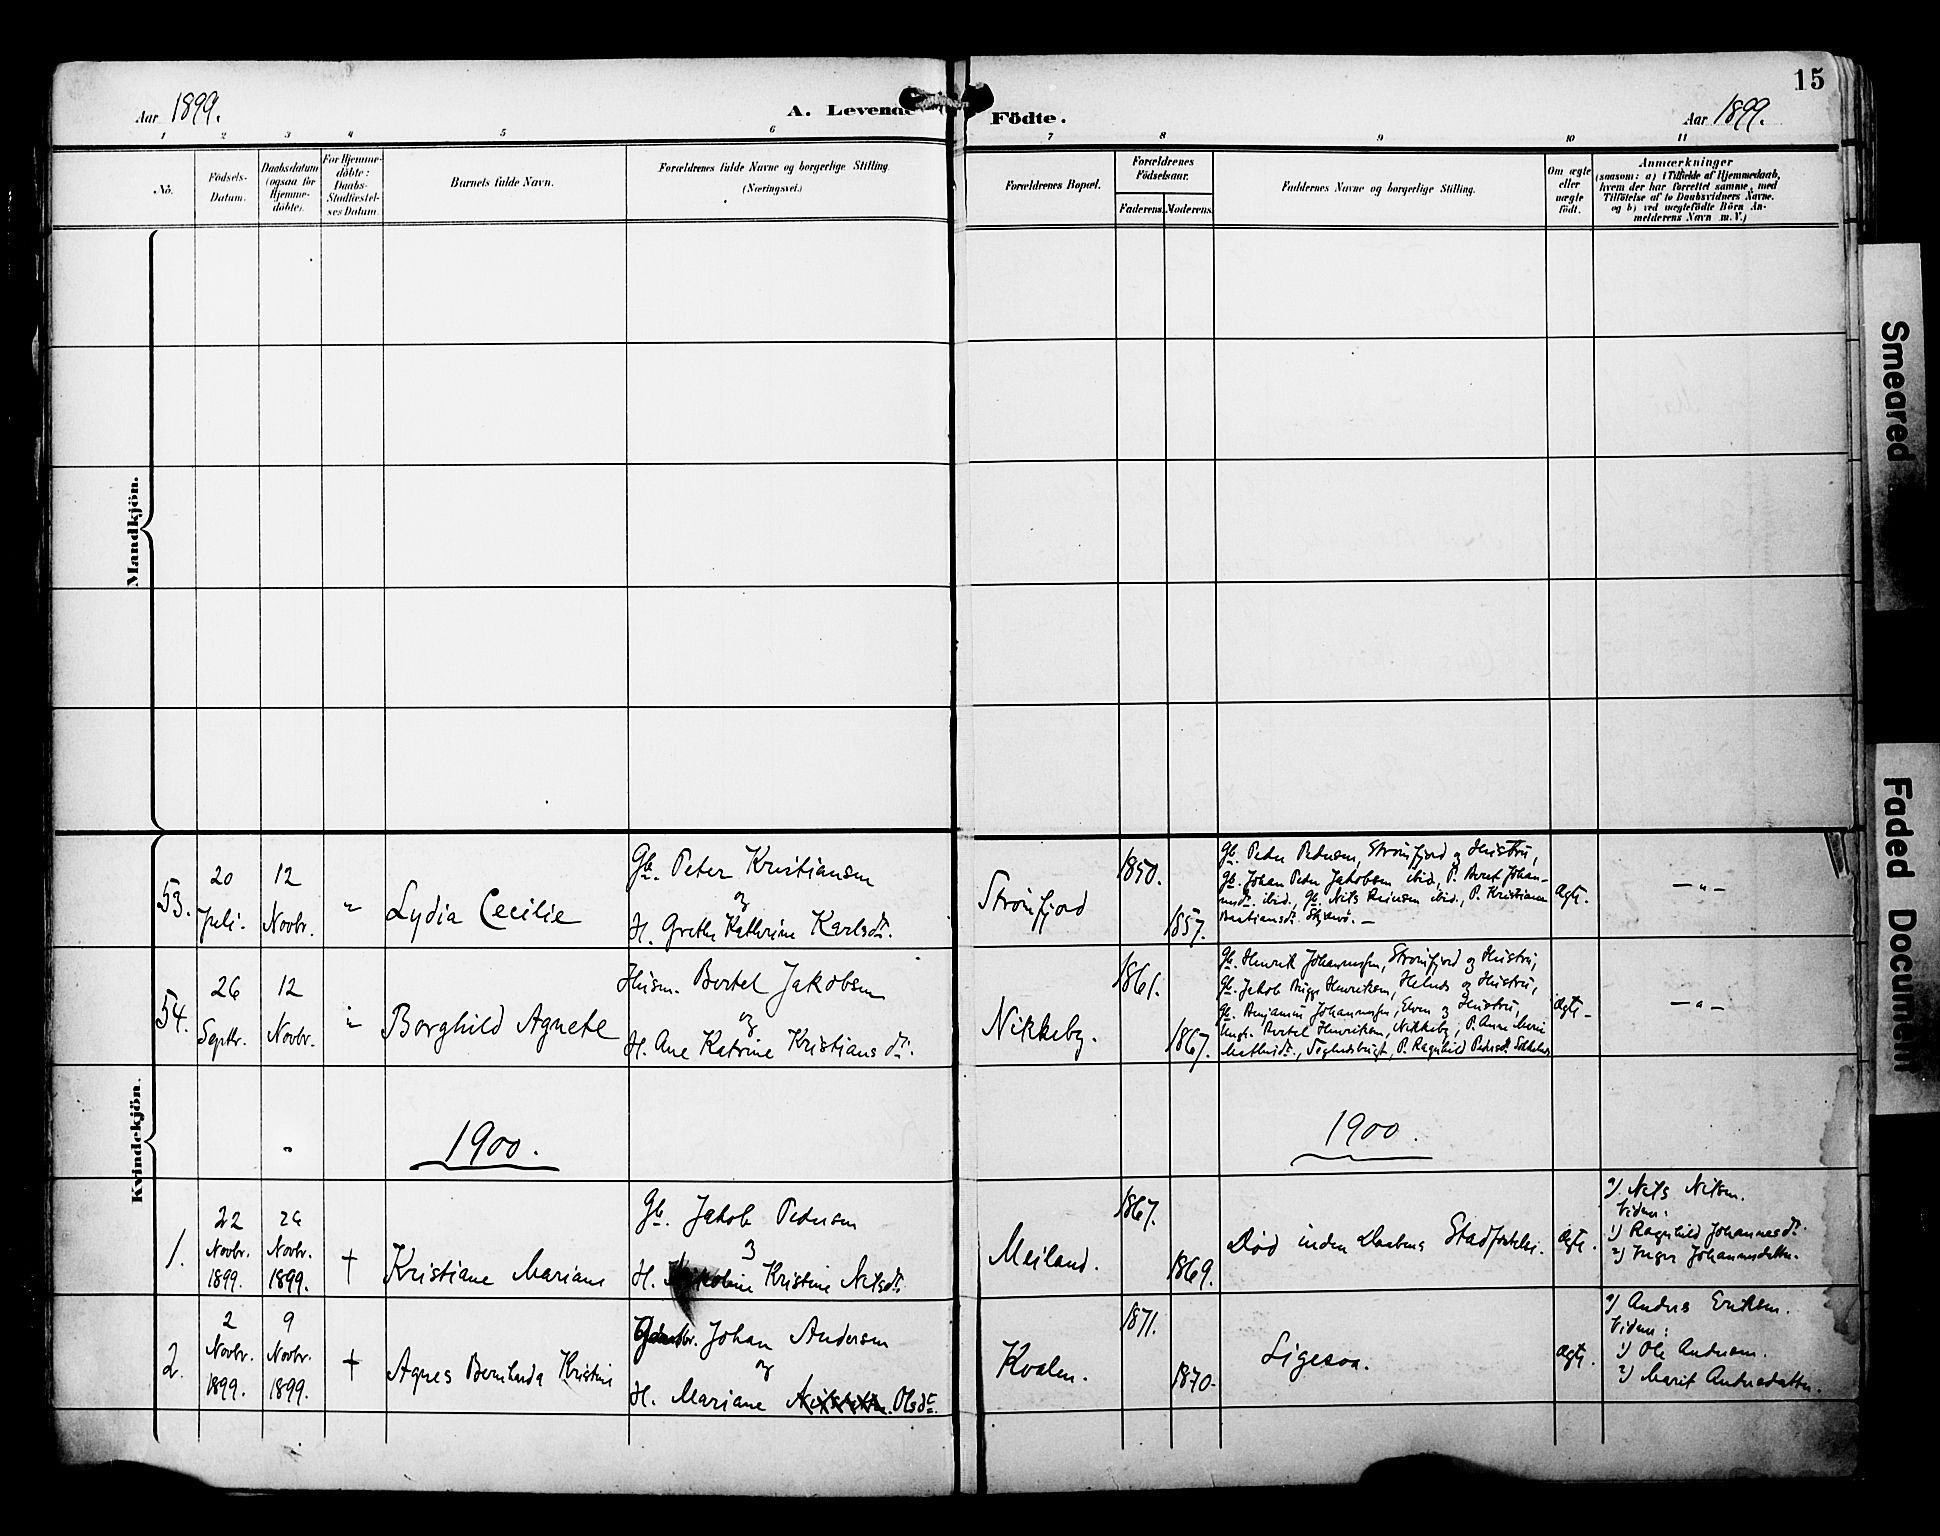 15
Aar 1899.
A. Levende Födte.
Aar 1899.
1 2 3 4 5 6 7 8 9 10 11
No.
Födsels-
Datum.
Daabsdatum
(ogsaa for
Hjemme-
döbte).
For Hjemme-
döbte:
Daabs-
Stadfæstel-
ses Datum.
Barnets fulde Navn.
Forældrenes fulde Navne og borgerlige Stilling.
(Næringsvei.)
Forældrenes Bopæl.
Forældrenes
Födselsaar.
Faderens.
Moderens.
Faddernes Navne og borgerlige Stilling.
Om ægte
eller
uægte
födt.
Anmærkninger
(saasom: a) i Tilfælde af Hjemmedaab,
hvem der har forrettet samme, med
Tilföielse af to Daabsvidners Navne.
og b) ved uægtefödte Börn An-
melderens Navn m. V.)
Mandkjön.
Kvindekjön.
53.
20
Juli.
12
Novbr.
"
Lydia Cecilie
Gb. Peter Kristiansen
og
H. Grethe Kathrine Karlsdt.
Strömfjord
1850.
1857.
Gb. Peder Pedersen, Strömfjord og Hustru,
Gb. Johan Peder Jakobsen ibid., P. Beret Johan-
nesdt. ibid., Gb. Nils ibid., P. Kristianne
Bastiansdt.
Ægte.
— " —
54.
26
Septbr.
12
Novbr.
"
Borghild Agnete
Husm. Bertel Jakobsen
og
H. Ane Katrine Kristiansdt.
Nikkeby.
1861.
1867.
Gb. Henrik Johannesen, Strömfjord og Hustru,
Gb. Jakob Bugge Henriksen, Helnes og Hustru,
Gb. Benjamin Johannesen, og Hustru,
Ungk. Bertel Henriksen, Nikkeby, P. Anne Marie
P. Ragnhild Pedersdt.
Ægte
— " —
1900.
1900.
1.
22
Novbr.
1899.
26
Novbr.
1899.
†
Kristiane Mariane
Gb. Jakob Pedersen
og
H. Kristine Nilsdt.
Meiland.
1867.
1869.
Död inden Daabens Stadfæstelse.
Ægte.
a) Nils Nilsen.
Vidner:
1) Ragnhild Johannesdt.
2) Inger Johannesdatter.
2.
2
Novbr.
1899.
9
Novbr.
1899.
†
Agnes Bernharda Kristine
Johan Andersen
og
H. Mariane Olsdt.
Kvalen.
1871.
1870.
Ligesaa.
Ægte.
a) Anders Eriksen.
Vidner:
1) Ole Andersen.
2) Marit Andersdatter.
Smeared
Faded Document